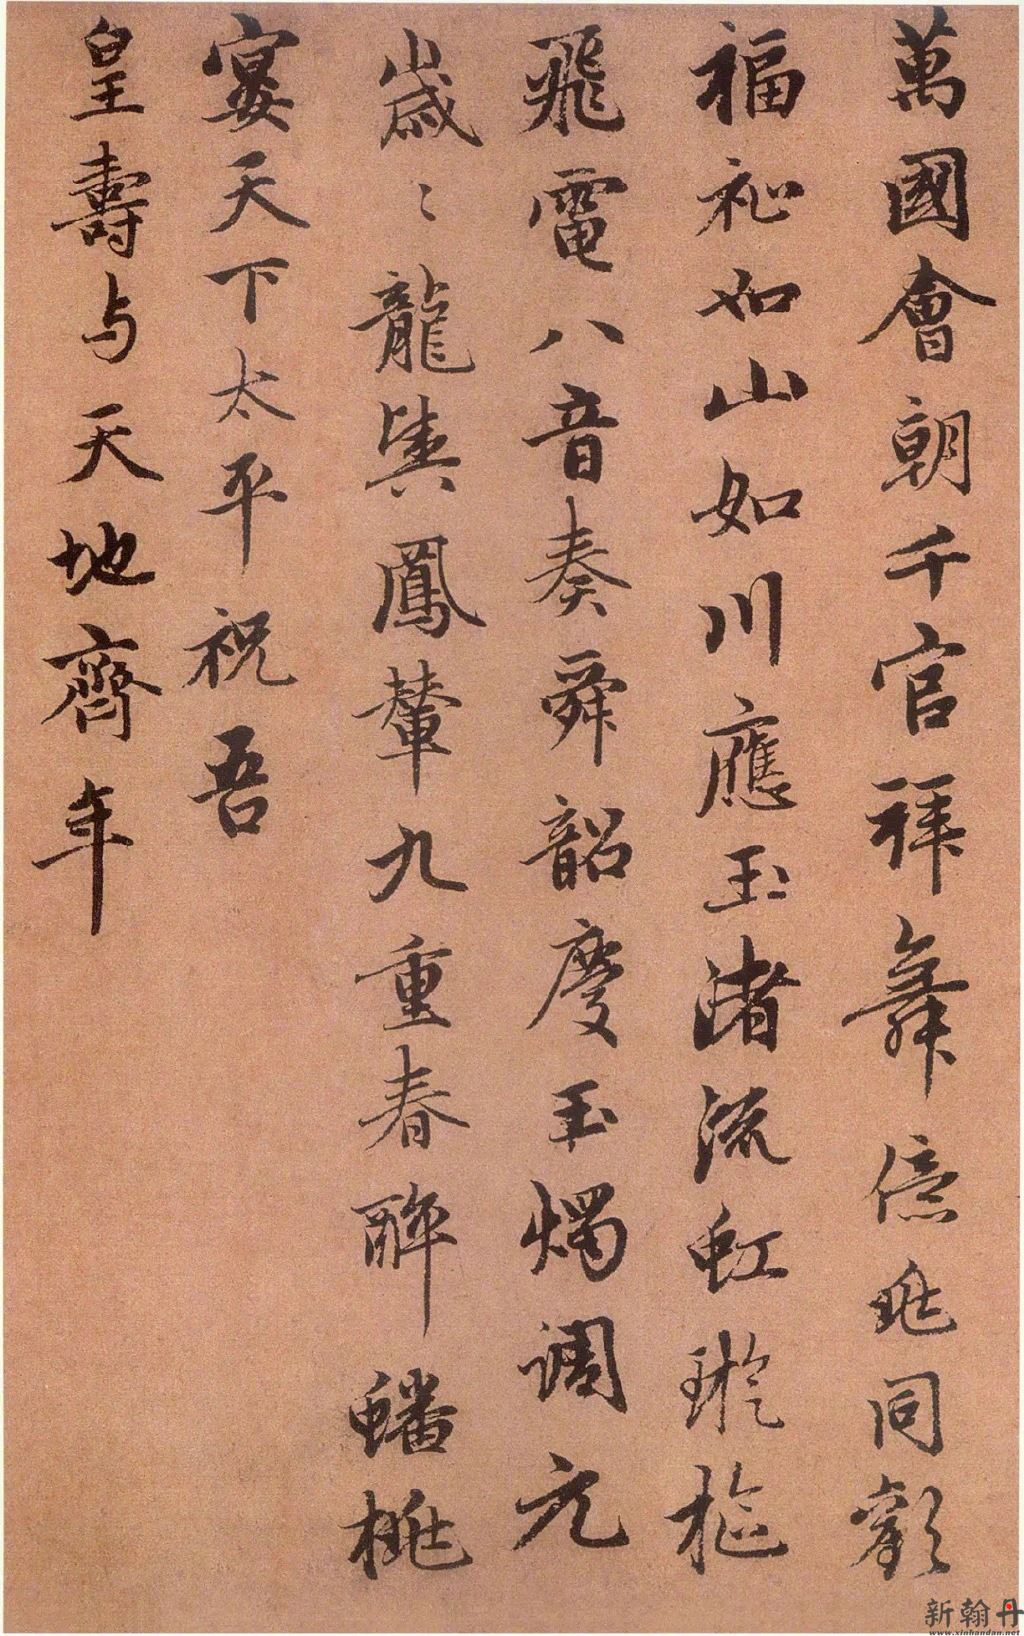 萬國會朝千官拜舞億兆同歡
福祉如山如川應玉渚流虹璇樞
飛電八音奏舜韶慶玉燭調元
歲〻龍輿鳳輦九重春醉蟠桃
宴天下太平祝吾
皇壽与天地齊年
新翰丹
www.xinhandan.net